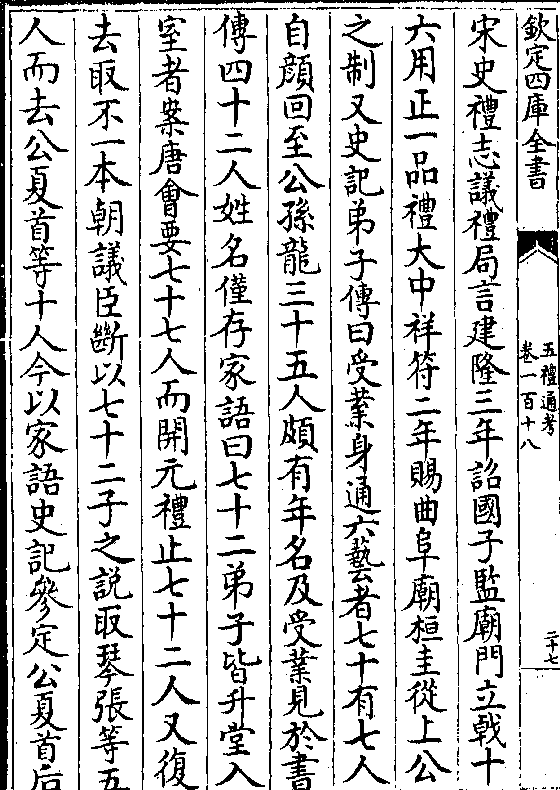 欽定四庫全書
五禮通考
卷一百十八
二十七
宋史禮志議禮局言建隆三年詔國子監廟門立㦸十
六用正一品禮大中祥符二年賜曲阜廟桓圭從上公
之制又史記弟子傳曰受業身通六藝者七十有七人
自顔回至公孫龍三十五人頗有年名及受業見於書
傳四十二人姓名僅存家語曰七十二弟子皆升堂入
室者案唐會要七十七人而開元禮止七十二人又復
去取不一本朝議臣斷以七十二子之説取琴張等五
人而去公夏首等十人今以家語史記參定公夏首后